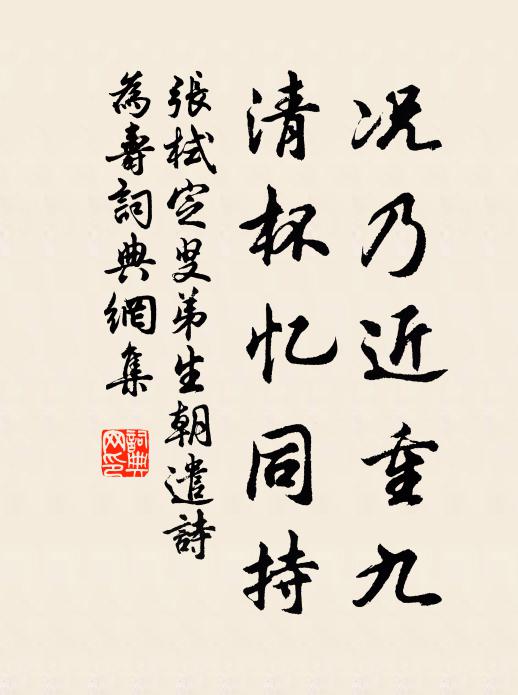 况乃近重九
清杯忆同持
張栻定叟弟生朝遣詩
為壽詞典網集
詞典
网印